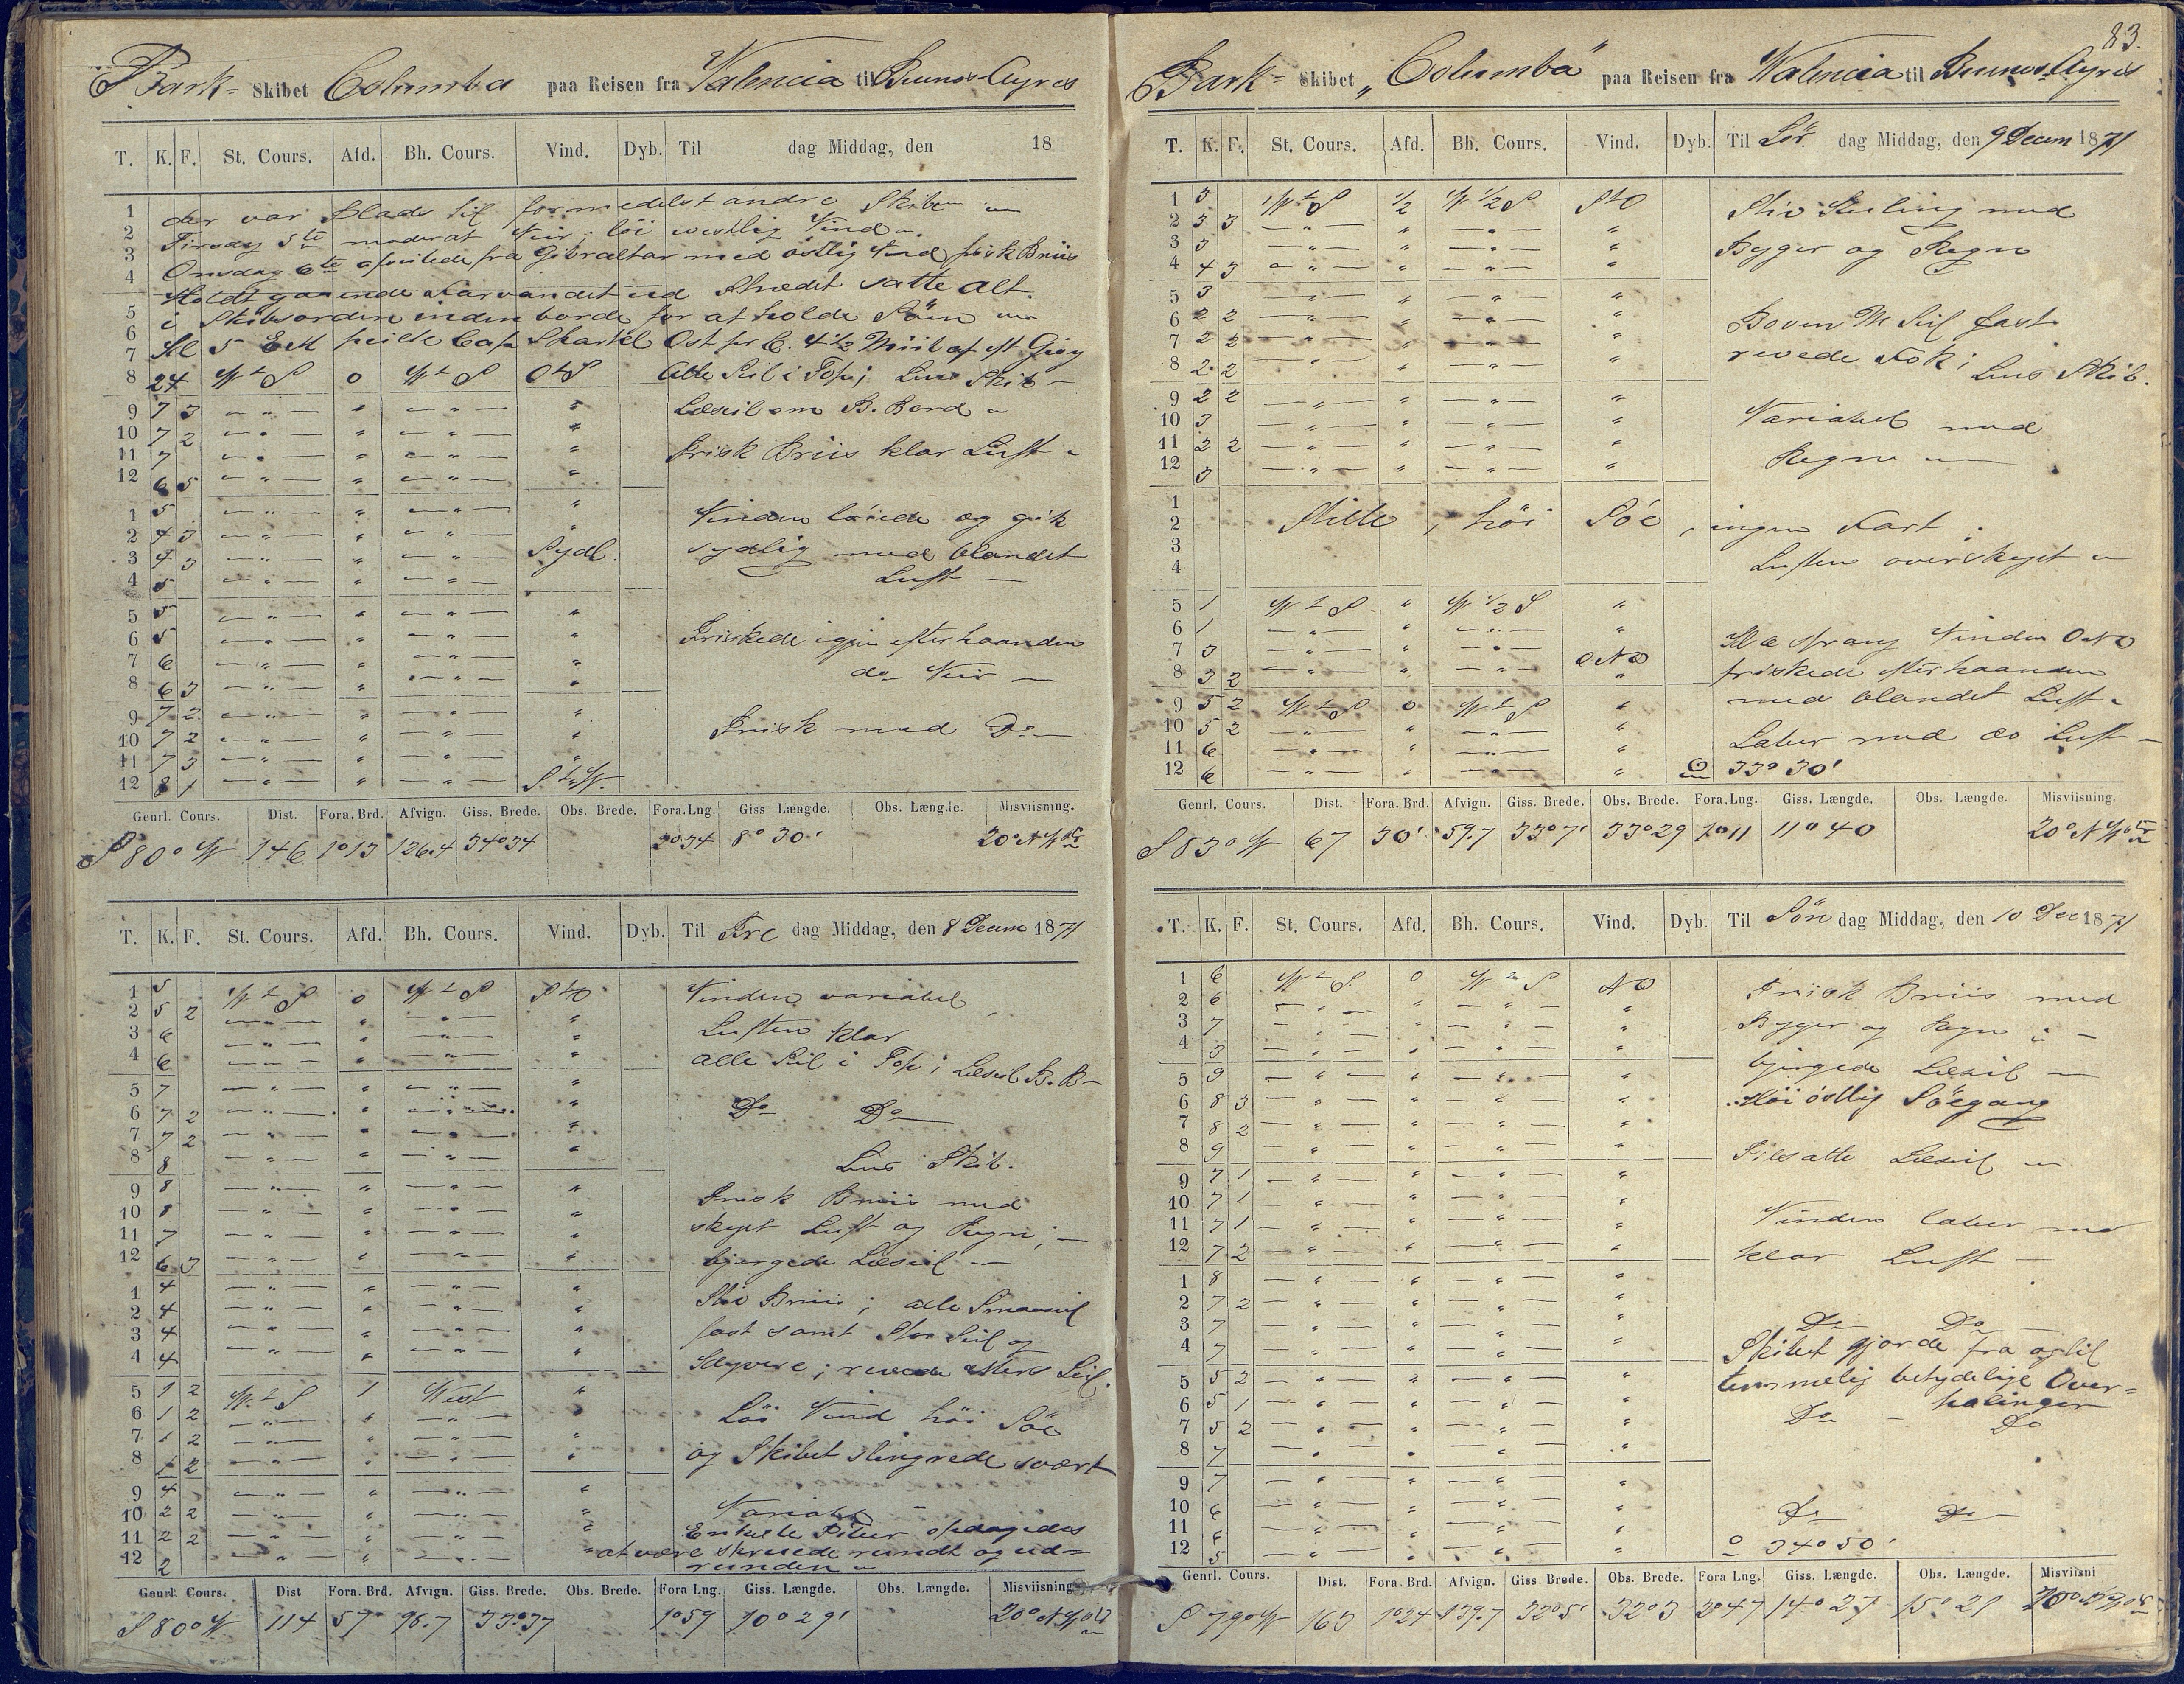 Bark- Skibet Columba paa Reisen fra Valencia til Buenos Ayres
T. K. F. St. Cours. Afd. Bh. Cours. Vind. Dyb. Til dag Middag, den 18
1 der var Plads til formedelst andre Skibe
2 Tirsdag 5te moderat Veir; löi westlig Vind
3 Onsdag 6te afseilede fra Gibraltar med östlig Vind frisk Briis
4 Holdt gaaende Farvandet ud Strædet satte Alt
5 i Skibsorden inden borde for at holde Söen
6
7 Kl 5 EM peilte Cap Spartel Ost pr C. 4 1/2 Miil af
8 24 W t S 0 W t S O t S Alle Seil i Top; Lens Skib
9 7 3 " " " " Læseil om B. Bord
10 7 2 " " " "
11 7 " " " " Frisk Briis klar Luft
12 6 5 " " " "
1 5 " " " " Vinden löiede og gik
2 4 3 " " " "
3 4 3 " " " Sydl. sydlig med blandet
4 5 " " " Luft
5 5 " " " "
6 5 " " " " Friskede igjen efterhaanden
7 6 " " " "
8 6 3 " " " " do Veir
9 7 2 " " " "
10 7 2 " " " " Frisk med Do
11 7 3 " " " "
12 8 1 " " " S t W.
Genrl. Cours. Dist. Fora. Brd. Afvign. Giss. Brede. Obs. Brede. Fora. Lng. Giss Længde. Obs. Længde. Misviisning.
S 80° W 146 1°13 126.4 34°34 2°34 8° 30' 20° N W
T. K. F. St. Cours. Afd. Bh. Cours. Vind. Dyb. Til Fre dag Middag, den 8 Decem 1871
1 5 W t S 0 W t S S t O Vinden variabel
2 5 2 " " " "
3 6 " " " " Luften klar
4 6 " " " " alle Seil i Top; Læseil B. B
5 7 " " " "
6 7 2 " " " " Do Do
7 7 2 " " " "
8 8 " " " " Lens Skib.
9 8 " " " " Frisk Briis med
10 8 " " " "
11 7 " " " " skyet Luft og Regn;
12 6 3 " " " " bjergede Læseil
1 4 " " " "
2 4 " " " " Stiv Briis; alle Smaaseil
3 4 " " " " fast samt Stor Seil og
4 4 " " " " Klyvere; revede Mers Seil.
5 1 2 W t S 1 West "
6 1 2 " " " " Löi Vind höi Söe
7 1 2 " " " "
8 1 2 " " " " og Skibet slingrede svært
9 4 " " " "
10 2 2 " " " " Variabel
11 2 2 " " " " Enkelte opdagedes
12 2 " " " " at være skruede rundt og ud=
runden
Genrl. Cours. Dist Fora. Brd. Afvign. Giss. Brede. Obs. Brede. Fora Lng. Giss. Længde. Obs. Længde. Misviisning
S 80° W 114 57 98.7 33°37 1°59 10° 29' 20° N W
83.
Bark- Skibet "Columba" paa Reisen fra Valencia til Buenos Ayres
T. K. F. St. Cours. Afd. Bh. Cours. Vind. Dyb. Til Lör dag Middag, den 9 Decem 1871
1 5 W t S 1/2 W 1/2 S S t O Stiv Kuling med
2 5 3 " " " "
3 5 " " " " Byger og Regn
4 4 3 " " " "
5 3 " " " "
6 2 2 " " " " Boven M Seil fast
7 2 2 " " " " revede Fok;
8 2 2 " " " " Lens Skib.
9 2 2 " " " "
10 3 " " " " Variabel med
11 2 2 " " " "
12 3 " " " " Regn
1
2 Stille, höi Söe, ingen Fart.
3
4 Luften overskyet
5 1 W t S " W 1/2 S "
6 1 " " " " Kl 6 sprang Vinden ONO
7 3 " " " ONO
8 3 2 " " " " friskede efterhaanden
9 5 2 W t S 0 W t S " med blandet Luft
10 5 2 " " " "
11 6 " " " " Laber med do Luft
12 6 " " " " 33° 30'
Genrl. Cours. Dist. Fora. Brd. Afvign. Giss. Brede. Obs. Brede. Fora. Lng. Giss. Længde. Obs. Længde. Misviisning.
S 83° W 67 30' 59.7 33°7' 33°29 1°11 11° 40 20° N W
T. K. F. St. Cours. Afd. Bh. Cours. Vind. Dyb. Til Sön dag Middag, den 10 Dec 1871
1 6 W t S 0 W t S NO Frisk Briis med
2 6 " " " "
3 7 " " " " Byger og Regn
4 3 " " " " bjergede Læseil
5 9 " " " "
6 8 3 " " " " Höi östlig Söegang
7 8 2 " " " "
8 9 " " " " Tilsatte Læseil
9 7 1 " " " "
10 7 1 " " " " Vinden laber med
11 7 1 " " " "
12 7 2 " " " " klar Luft
1 8 " " " "
2 7 2 " " " "
3 7 " " " " Do Do
4 7 " " " " Skibet gjorde fra og til
5 5 2 " " " " temmelig betydelige Over=
6 5 1 " " " " halinger
7 5 2 " " " " Do Do
8 7 " " " "
9 7 " " " "
10 6 " " " " Do Do
11 6 " " " "
12 5 " " " " 34° 50'
Genrl. Cours. Dist. Fora. Brd. Afvign. Giss. Brede. Obs. Brede. Fora Lng. Giss. Længde. Obs. Længde. Misviisni
S 79° W 163 1°24 139.7 32°5' 32°3 2°47 14° 27 15° 21 20°